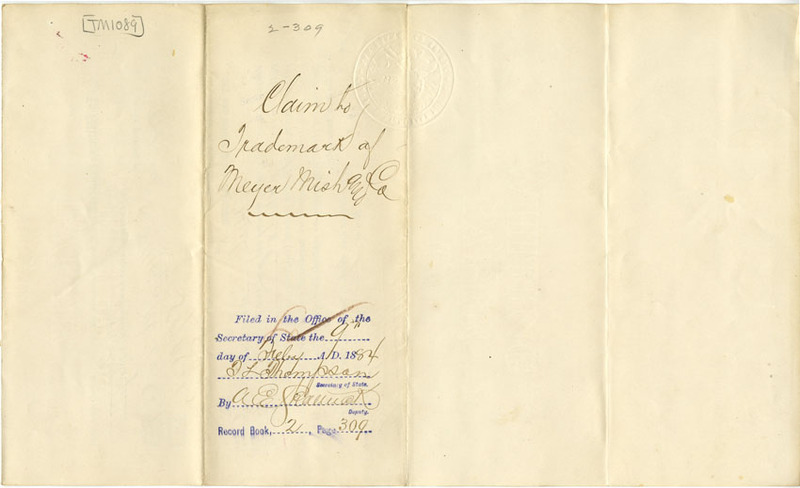 TM1089
2-309
Claim to
Trademark of
Meyer Mish & Co
Filed in the Office of the
Secretary of State the 9th
day of Feby A.D. 1884
T L Thompson
Secretary of State.
By A E
Deputy.
Record Book, 2, Page 309